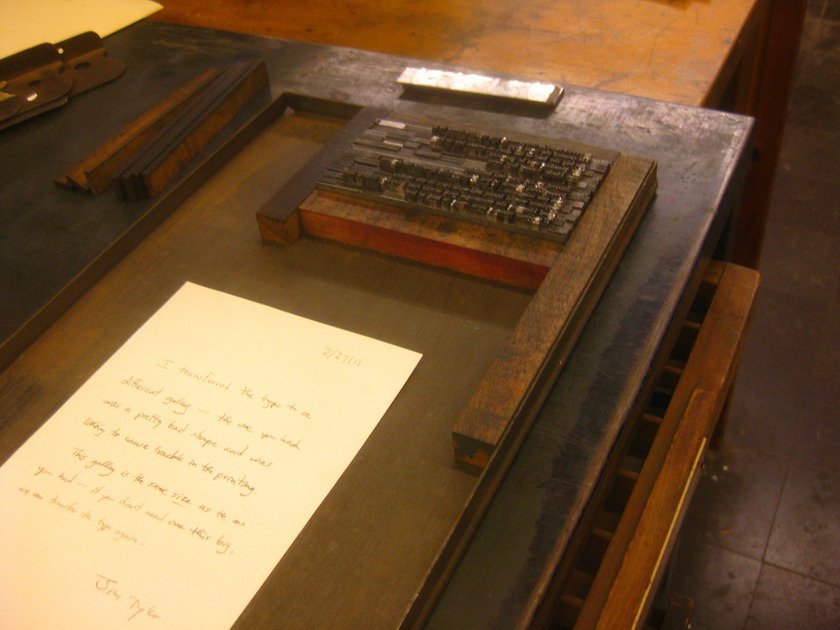 2/27/01
I transferred the type to a
different galley — the one you had
was a pretty bad shape and was
likely to cause trouble in the printing.
This galley is the same size as the one
you had — if you don't need one this big,
we can transfer the type again.
Jim Tyler